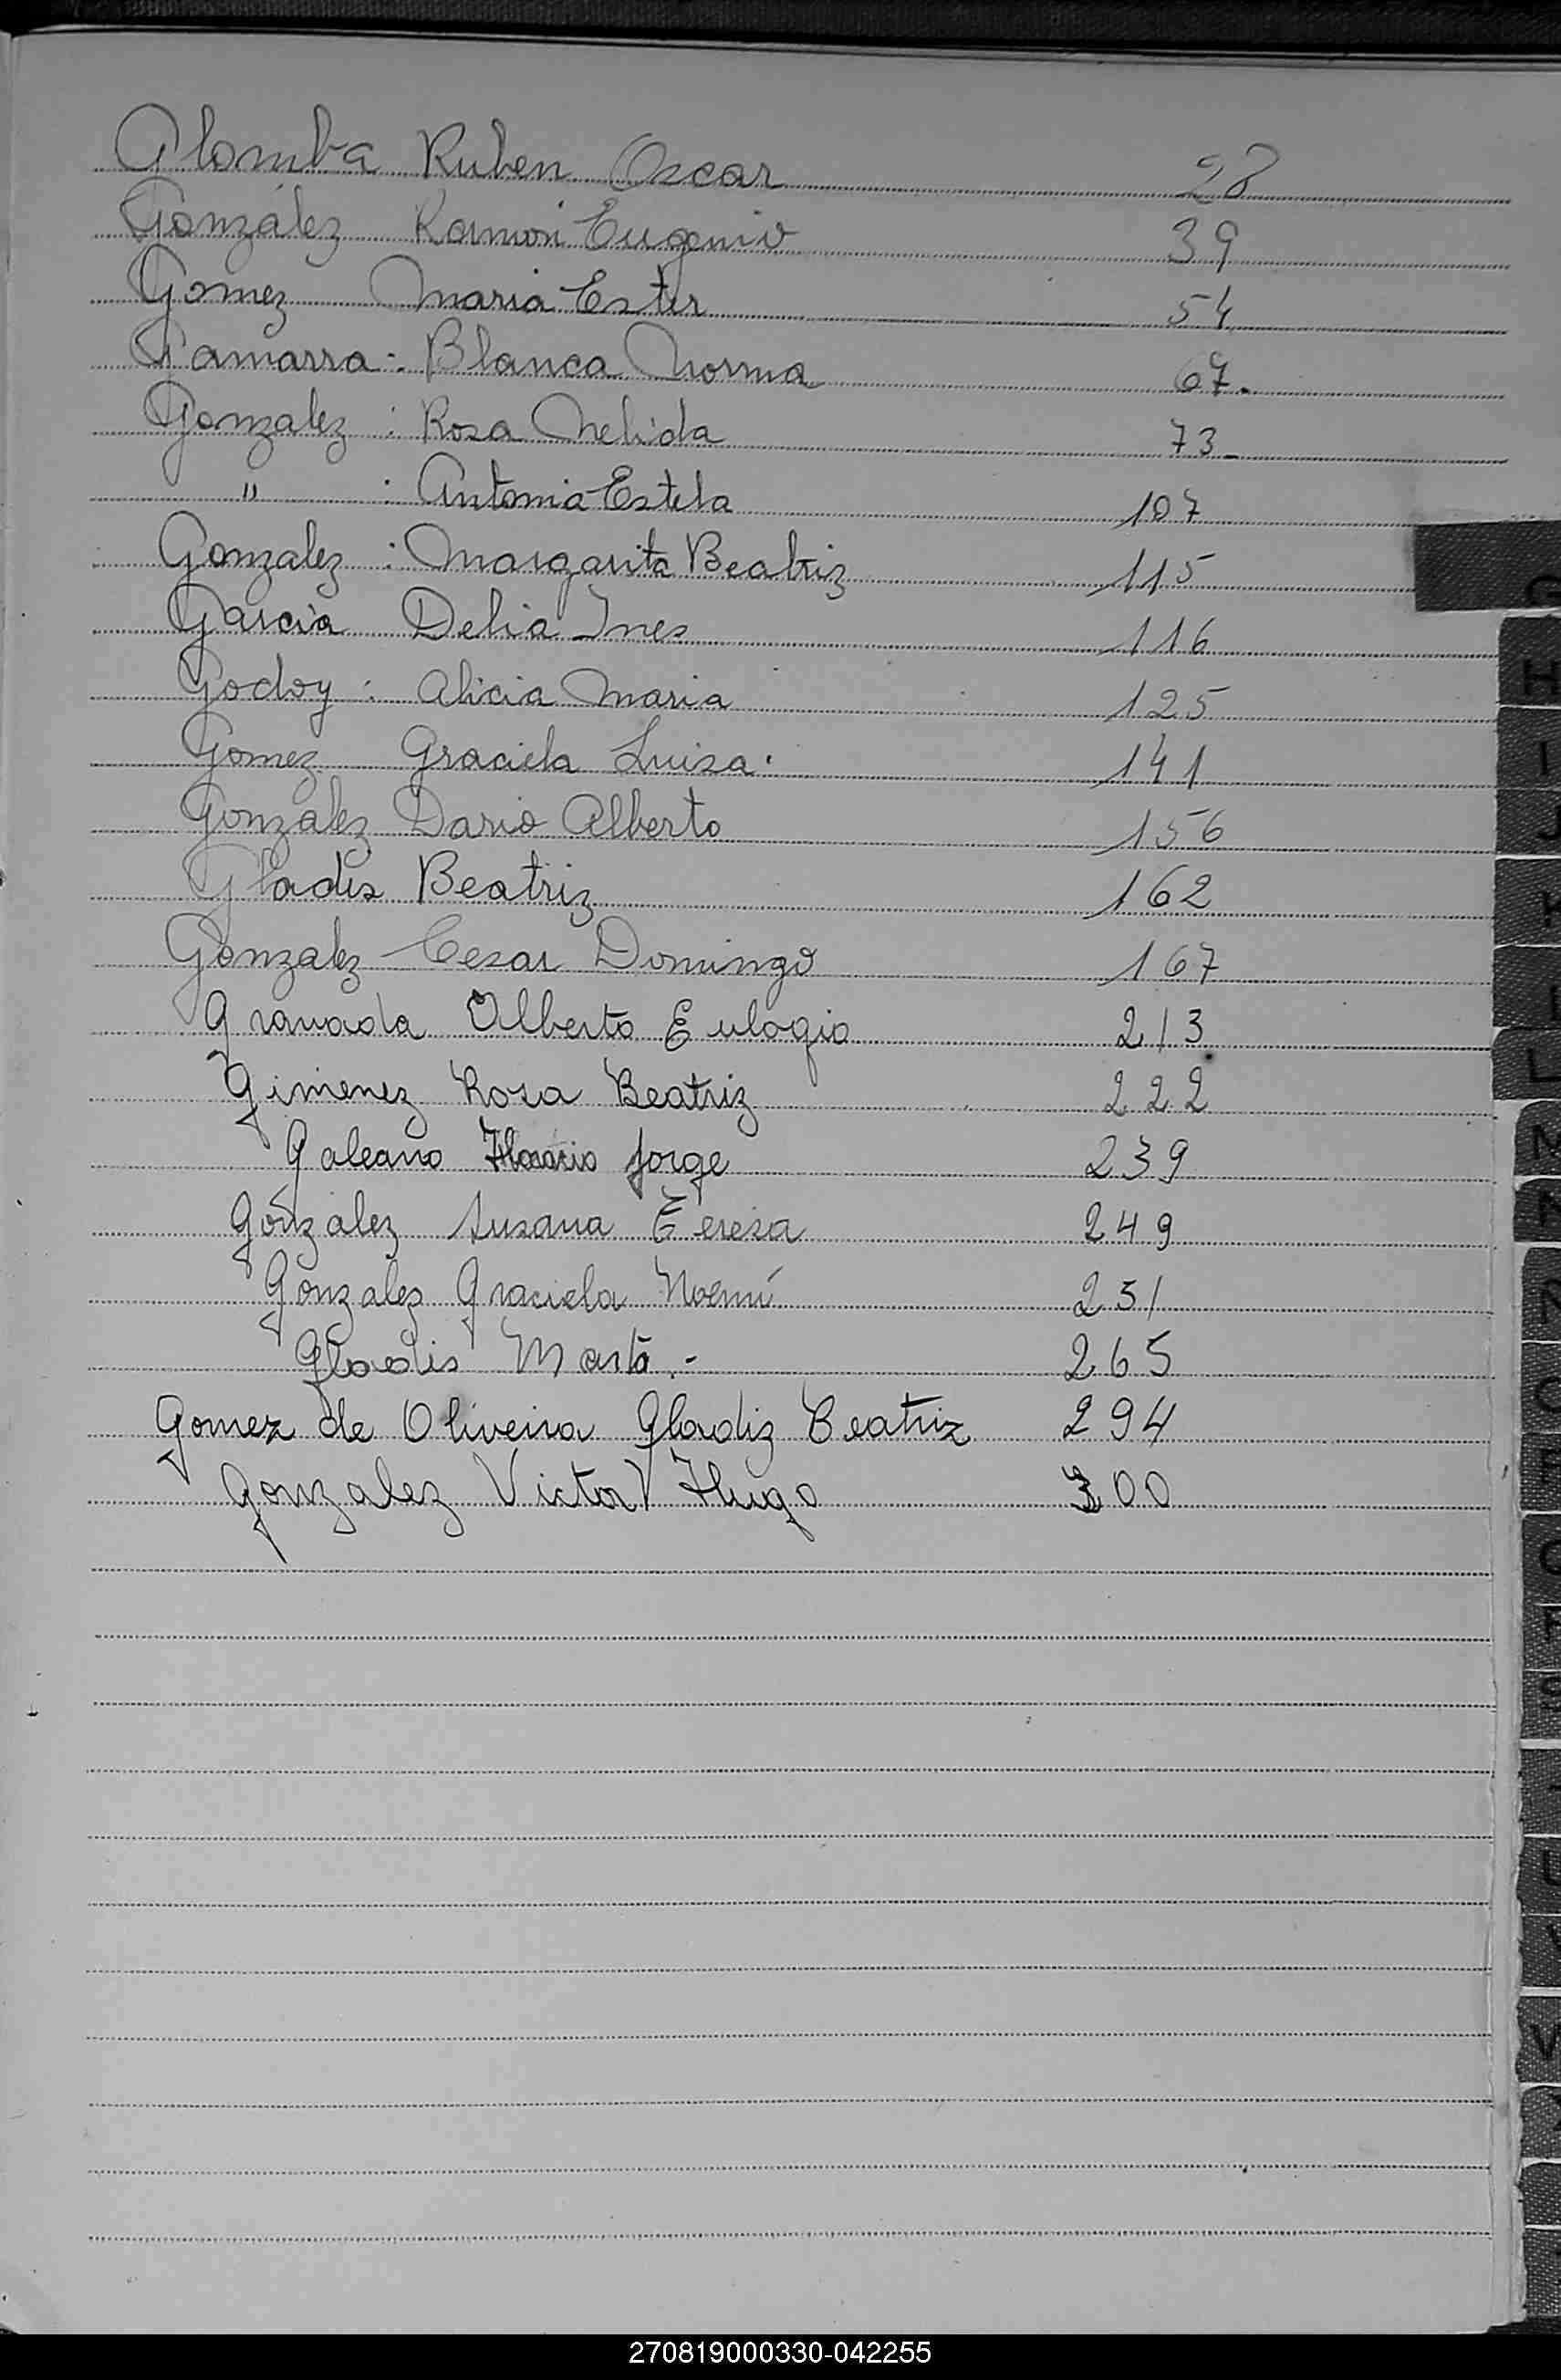 Glomba Ruben Oscar 28
González Ramon Eugenio 39
Gomez Maria Ester 54
Gamarra : Blanca Norma 67.
Gonzalez : Rosa Nelida 73_
" : Antonia Estela 107
Gonzalez : Margarita Beatriz 115
Garcia Delia Ines 116
Godoy : Alicia Maria 125
Gomez Graciela Luisa. 141
González Dario Alberto 156
Gladis Beatriz 162
Gonzalez Cesar Domingo 167
Granada Alberto Eulogio 213
Gimenez Rosa Beatriz 222
Galeano Horacio Jorge 239
González Susana Teresa 249
Gonzalez Graciela Noemí 251
Gladis Marta.- 265
Gomez de Oliveira Gladiz Beatriz 294
Gonzalez Victor Hugo 300
G
H
I
J
K
L
M
N
270819000330-042255